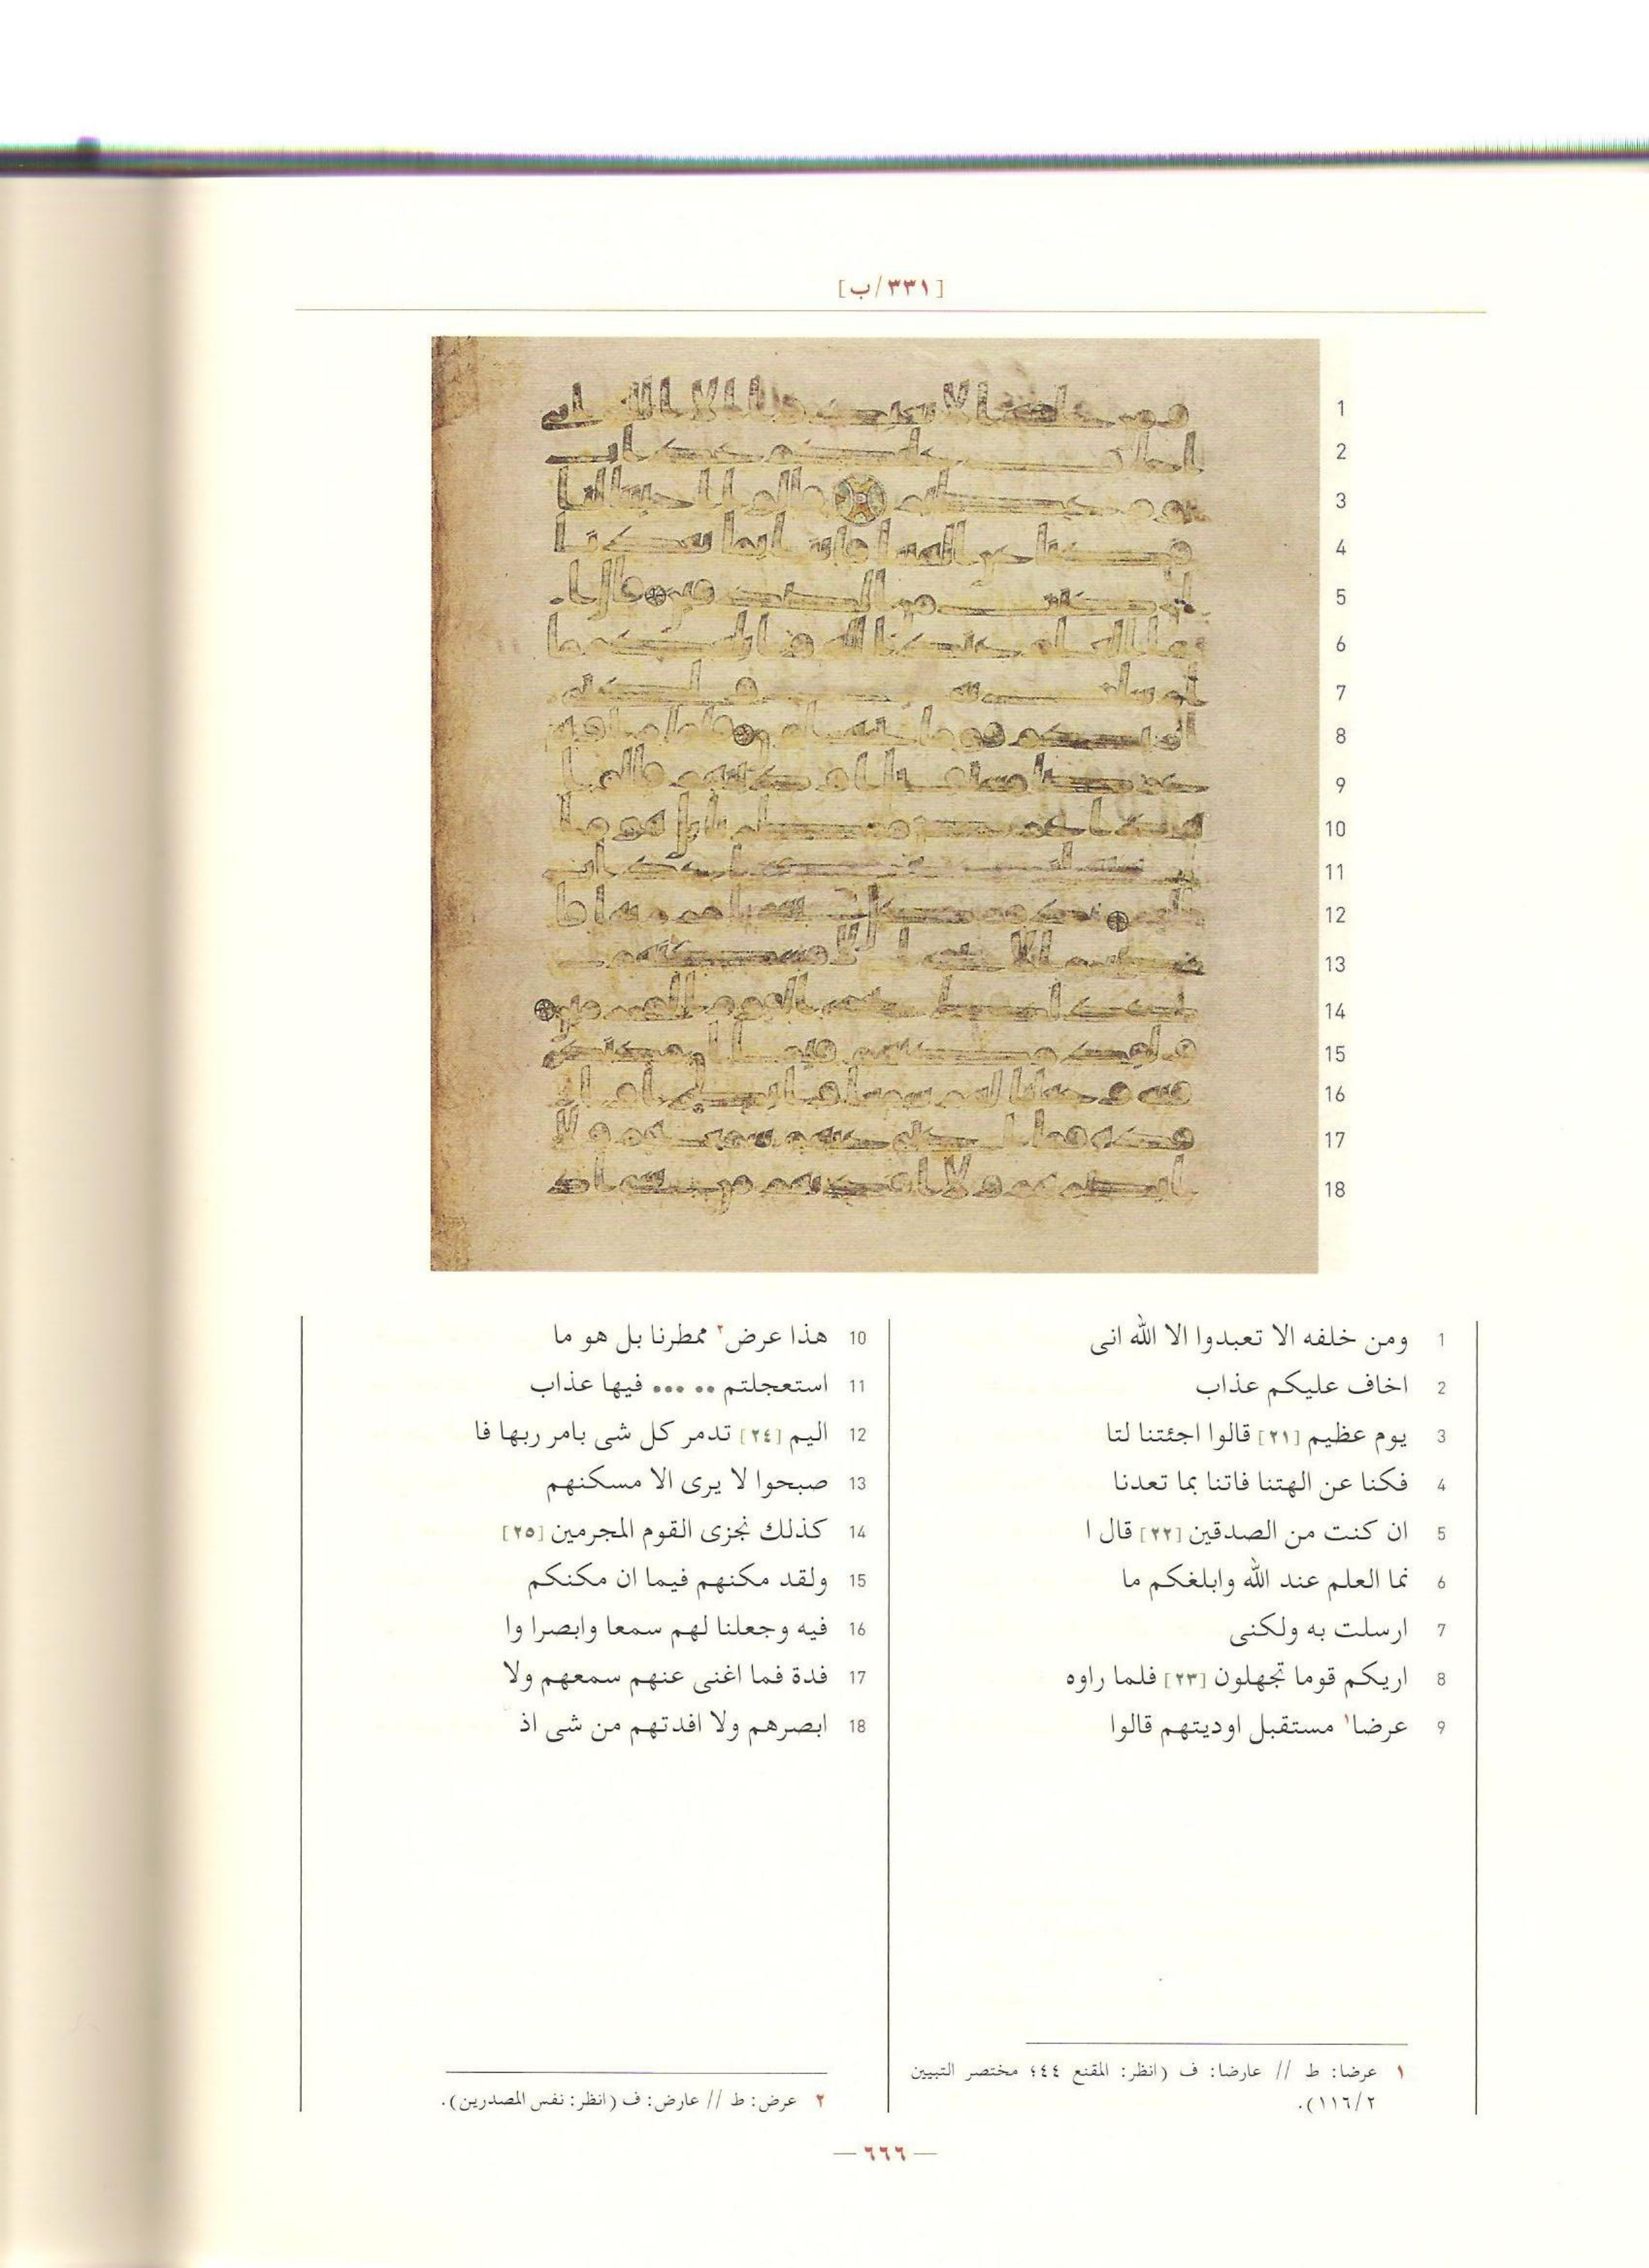 [٣٣١/ب]
1 ومن خلفه الا تعبدوا الا الله انى
2 اخاف عليكم عذاب
3 يوم عظيم [٢١] قالوا اجئتنا لتا
4 فكنا عن الهتنا فاتنا بما تعدنا
5 ان كنت من الصدقين [٢٢] قال ا
6 نما العلم عند الله وابلغكم ما
7 ارسلت به ولكنى
8 اريكم قوما تجهلون [٢٣] فلما راوه
9 عرضا١ مستقبل اوديتهم قالوا
10 هذا عرض٢ ممطرنا بل هو ما
11 استعجلتم •• ••• فيها عذاب
12 اليم [٢٤] تدمر كل شى بامر ربها فا
13 صبحوا لا يرى الا مسكنهم
14 كذلك نجزى القوم المجرمين [٢٥]
15 ولقد مكنهم فيما ان مكنكم
16 فيه وجعلنا لهم سمعا وابصرا وا
17 فدة فما اغنى عنهم سمعهم ولا
18 ابصرهم ولا افدتهم من شى اذ
١ عرضا: ط // عارضا: ف (انظر: المقنع ٤٤؛ مختصر التبيين
١١٦/٢).
٢ عرض: ط // عارض: ف (انظر: نفس المصدرين).
— ٦٦٦ —